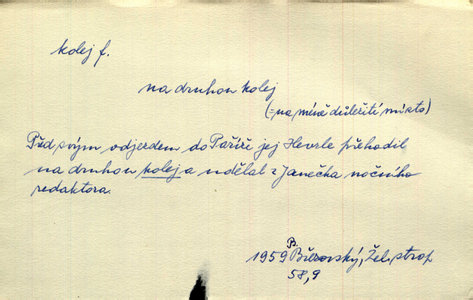 kolej f.
na druhou kolej
(= na méně důležité místo)
Před svým odjezdem do Paříže jej Heverle přehodil
na druhou kolej a udělal z Janečka nočního
redaktora.
1959 Ps. Březovský, Žel. strop
58,9